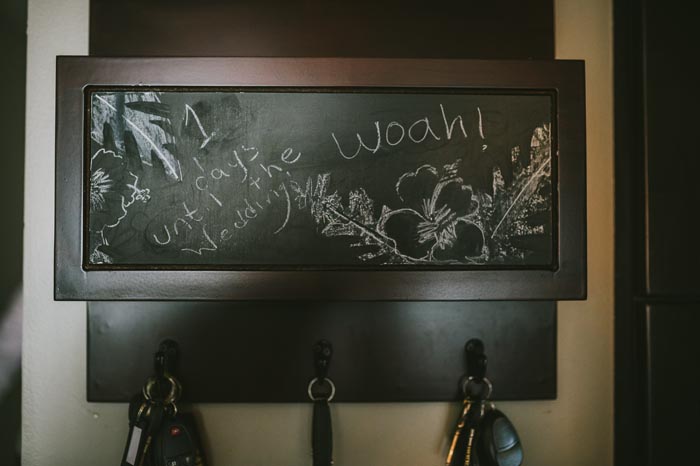 1
days
until the
Wedding
Woah!